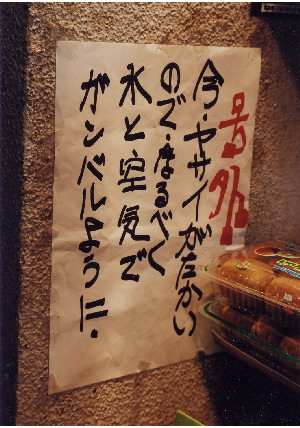 号外
今・ヤサイがたかい
ので・なるべく
水と空気で
ガンバルように.